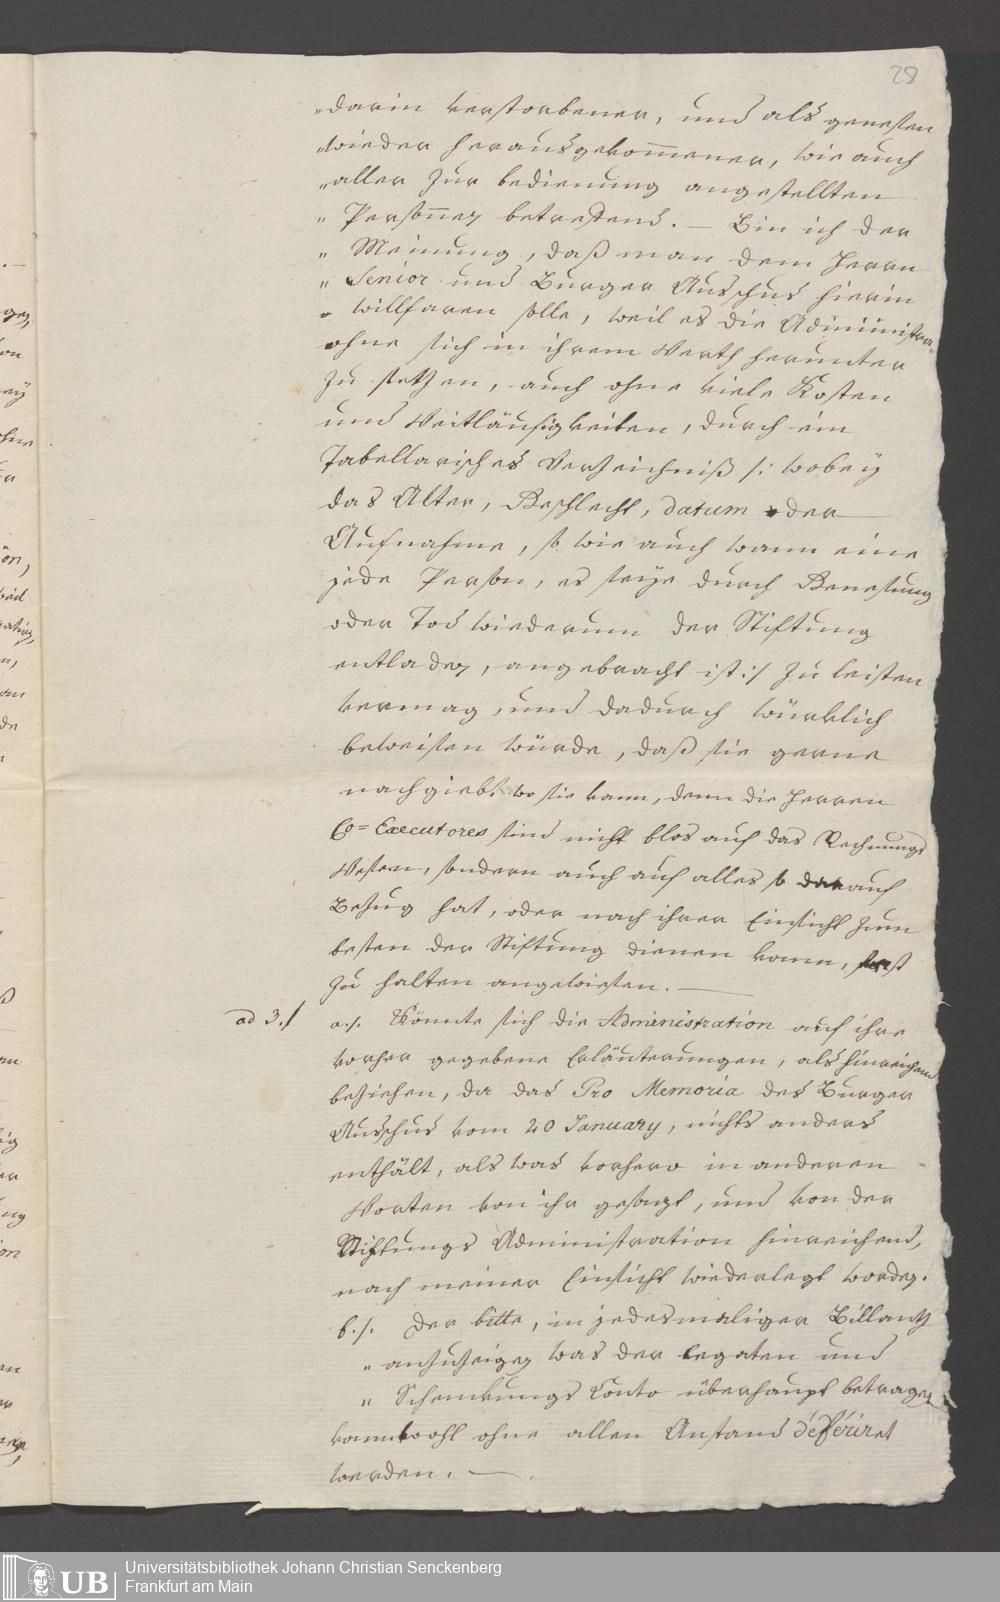 28
„darin verstorbener, und als genesen
„wieder herausgekom̄ener, wie auch
„aller zur bedienung angestellten
„ Persohnen betreffend. — Bin ich der
„ Meinung, daß man dem Herrn
„ Senior und Burger Ausschus hierin
„ willfaren solle, weil es die Administra„
ohne sich in ihrem Werth herunter
zu setzen, auch ohne viele Kosten
und Weitläufigkeiten, durch ein
Tabellarisches Verzeichniß /: wobey
das Alter, Geschlecht, datum der
Aufnahme, so wie auch wann eine
jede Person, es seye durch Genesung
oder Tod wiederum der Stiftung
entladen, angebracht ist :/ zu leisten
vermag, und dadurch würklich
beweisen würde, daß sie gerne
nachgiebt wo sie kann, denn die Herren
Co=Executores sind nicht blos auf das Rechnungs
Wesen, sondern auch auf alles so darauf
Bezug hat, oder nach ihrer Einsicht zum
besten der Stiftung dienen kann, fest
zu halten angewiesen. —
ad 3./ a./. Könnte sich die Administration auf ihre
vorher gegebene Erläuterungen, als hinreichend
beziehen, da das Pro Memoria des Burger
Ausschus vom 20 January, nichts anders
enthält, als was vorhero in anderen
Worten von ihr gesagt, und von der
Stiftungs Administration hinreichend,
nach meiner Einsicht wiederlegt worden.
b./. Der bitte, in jedesmaliger Billantz
„ anzuzeigen was der legaten und
„ Schenkungs Conto überhaupt betragen
kann wohl ohne allen Anstand déferiret
werden. —
UB Universitätsbibliothek Johann Christian Senckenberg
Frankfurt am Main